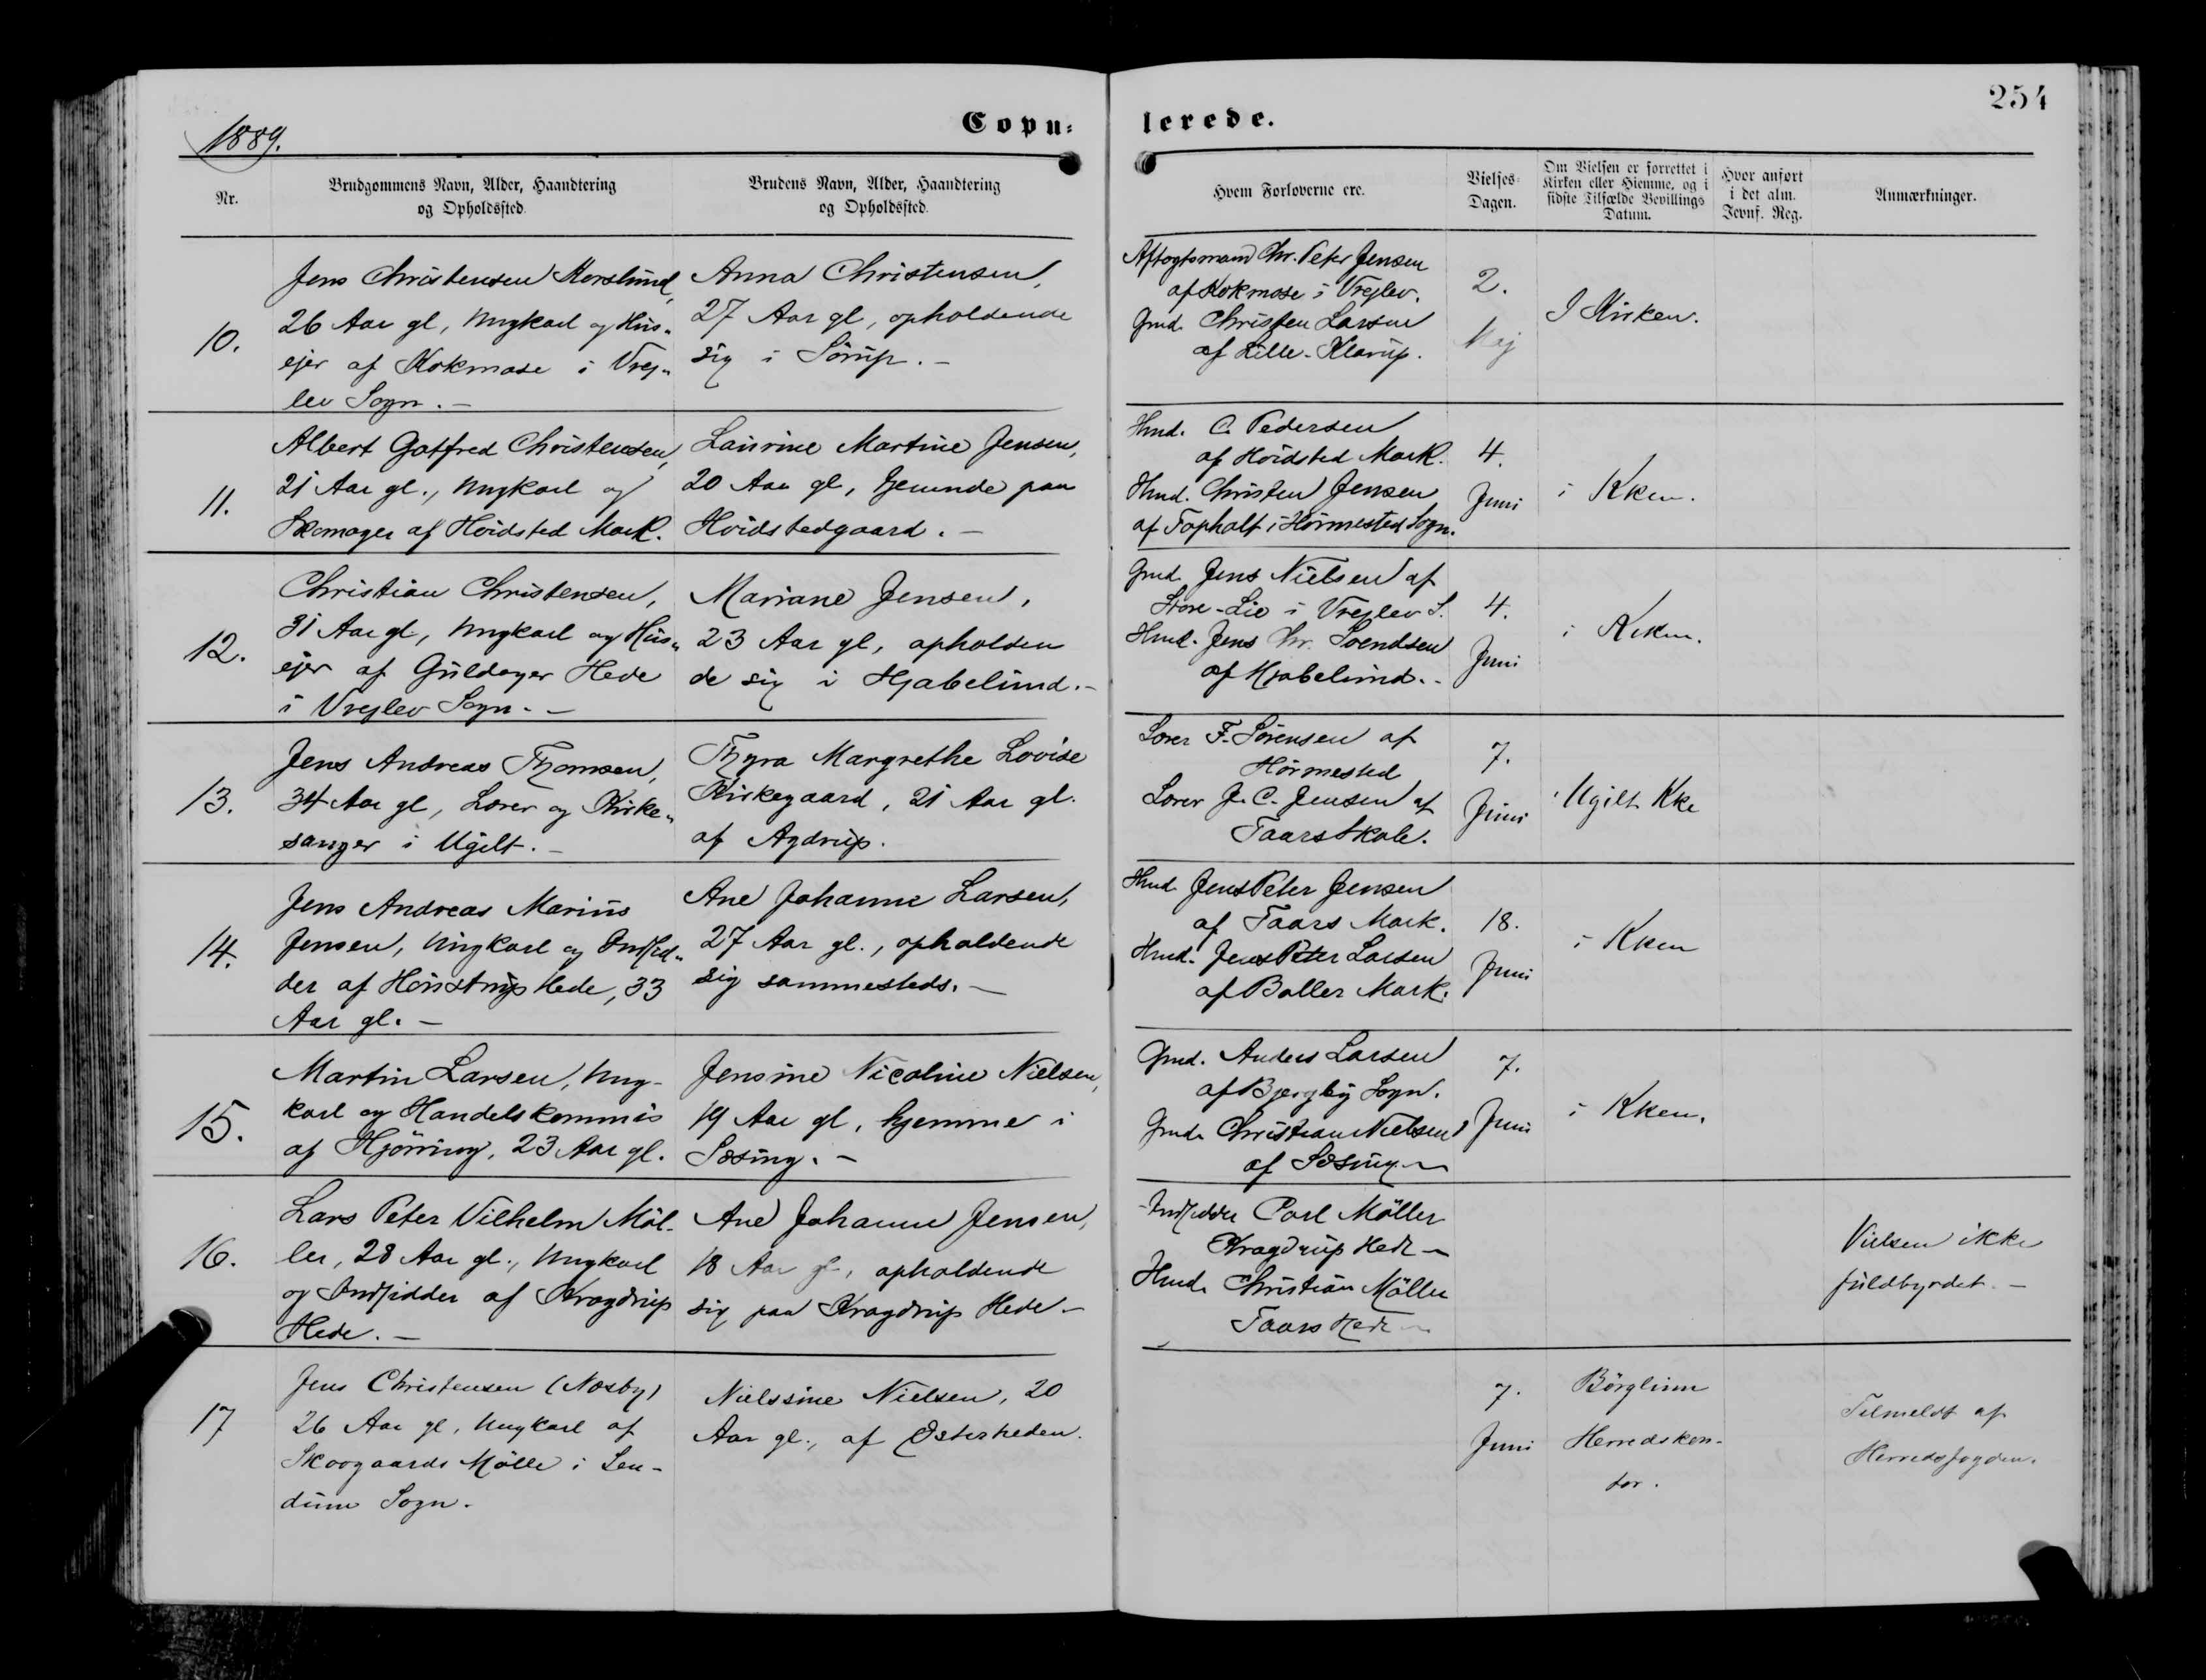 254
1889.
Copu=
lerede.
Nr.
Brudgommens Navn, Alder, Haandtering
og Opholdssted.
Brudens Navn, Alder, Haandtering
og Opholdssted.
Hvem Forloverne ere.
Vielses-
Dagen.
Om Vielsen er forrettet i
Kirken eller Hiemme, og i
sidste Tilfælde Bevillings
Datum.
Hvor anført
i det alm.
Jevnf. Reg.
Anmærkninger.
10.
Jens Christensen Korslund,
26 Aar gl, Ungkarl og Hus-
ejer af Kokmose i Vrej-
lev Sogn. -
Anna Christensen,
27 Aar gl, opholdende
sig i Sörup. -
Aftægtsmand Chr. Peter Jensen
af Kokmose i Vrejlev.
Gmd. Christen Larsen
af Lille-Klarup.
2.
Maj
I Kirken.
11.
Albert Gotfred Christensen,
21 Aar gl., Ungkarl og
Skomager af Höidsted Mark.
Laurine Martine Jensen,
20 Aar gl, tjenende paa
Höidstedgaard. -
Hmd. C. Pedersen
af Höidsted Mark.
Hmd. Christen Jensen
af Topholt i Hörmested Sogn.
4.
Juni
i Kken.
12.
Christian Christensen,
31 Aar gl, Ungkarl og Hus-
ejer af Guldager Hede
i Vrejlev Sogn. -
Mariane Jensen,
23 Aar gl, opholden
de sig i Hjabelund. -
Gmd. Jens Nielsen af
Store-Lie i Vrejlev S.
Hmd. Jens Chr. Svendsen
af Hjabelund. -
4.
Juni
i Kken.
13.
Jens Andreas Thomsen,
34 Aar gl, Lærer og Kirke-
sanger i Ugilt. -
Thyra Margrethe Lovise
Kirkegaard, 21 Aar gl.
af Agdrup.
Lærer F. Sörensen af
Hörmested
Lærer J. C. Jensen af
Taars Skole.
7.
Juni
i Ugilt Kke
14.
Jens Andreas Marius
Jensen, Ungkarl og Indsid-
der af Hönstrup Hede, 33
Aar gl. -
Ane Johanne Larsen,
27 Aar gl., opholdende
sig sammesteds. -
Hmd. Jens Peter Jensen
af Taars Mark.
Hmd. Jens Peter Larsen
af Baller Mark.
18.
Juni
i Kken
15.
Martin Larsen, Ung-
karl og Handelskommis
af Hjörring, 23 Aar gl.
Jensine Nicoline Nielsen,
19 Aar gl, hjemme i
Sæsing. -
Gmd. Anders Larsen
af Bjergby Sogn.
Gmd. Christian Nielsen
af Sæsing -
7.
Juni
i Kken.
16.
Lars Peter Vilhelm Möl-
ler, 28 Aar gl., Ungkarl
og Indsidder af Kragdrup
Hede. -
Ane Johanne Jensen,
18 Aar gl., opholdende
sig paa Kragdrup Hede -
Indsidder Carl Möller
Kragdrup Hede -
Hmd. Christian Möller
Taars Hede -
Vielsen ikke
fuldbyrdet. -
17
Jens Christensen (Næsby)
26 Aar gl, Ungkarl af
Skovgaards Mölle i Len-
dum Sogn.
Nielssine Nielsen, 20
Aar gl., af Østerheden.
7.
Juni
Börglum
Herredskon-
tor.
Tilmeldt af
Herredsfogden.